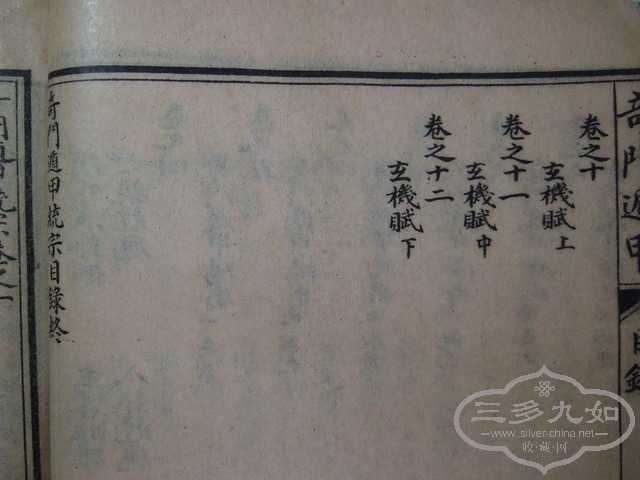 奇門遁甲
目錄
卷之十
玄機賦上
卷之十一
玄機賦中
卷之十二
玄機賦下
奇門遁甲統宗目錄終
三多九如
www.silver-china.net
收·藏·网